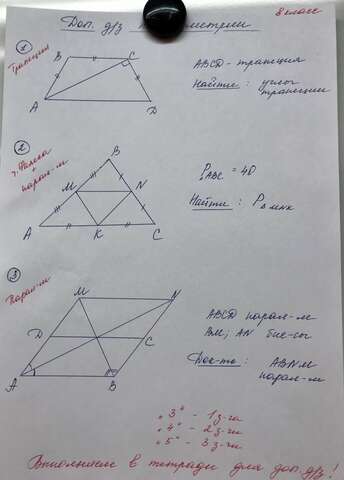 8 класс
Доп. д/з геометрии
1
Трапеция
B C
A D
ABCD - трапеция
Найти : углы
трапеции
2
т. Фалеса
+
парал-м
B
M N
A K C
P ABC = 40
Найти : P Δ MNK
3
Парал-м
M N
D C
A B
ABCD парал-м
BM; AN бис-сы
Док-ть : ABNM
парал-м
"3" - 1 з-ча
"4" - 2 з-чи
"5" - 3 з-чи
Выполняем в тетради для доп. д/з !